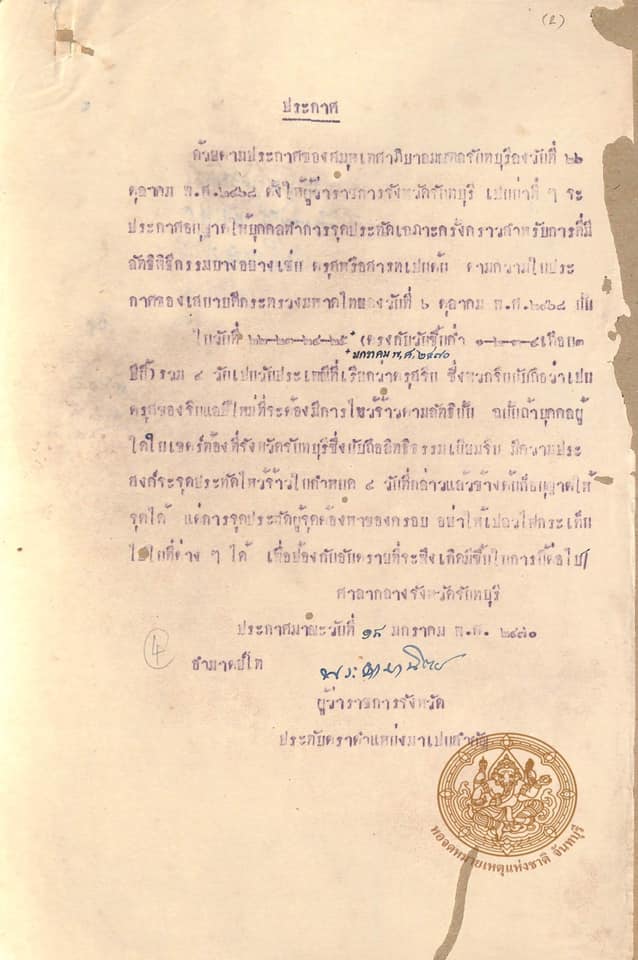 (๒)
ประกาศ
ด้วยตามประกาศของสมุหเทศาภิบาลมณฑลจันทบุรีลงวันที่ ๒๖
ตุลาคม พ.ศ.๒๔๖๘ ตั้งให้ผู้ว่าราชการจังหวัดจันทบุรี เปนน่าที่ ๆ จะ
ประกาศอนุญาตให้บุคคลทำการจุดประทัดเฉภาะครั้งคราวสำหรับการที่มี
ลัทธิพิธีกรรมบางอย่างเช่น ตรุศหรือสารทเปนต้น ตามความในประ
กาศของเสนาบดีกระทรวงมหาดไทยลงวันที่ ๖ ตุลาคม พ.ศ.๒๔๖๘ นั้น
ในวันที่ ๒๒-๒๓-๒๔-๒๕ (ตรงกับวันขึ้นค่ำ ๑-๒-๓-๔เดือน๓
มกราคม พ.ศ.๒๔๗๐
ปีนี้) รวม ๔ วันเปนวันประเพณีที่เรียกว่าตรุศจีน ซึ่งพวกจีนนับถือว่าเปน
ตรุศของจีนแลปีใหม่ที่จะต้องมีการไหว้จ้าวตามลัทธินั้น ฉนั้นถ้าบุคคลผู้
ใดในเขตร์ท้องที่จังหวัดจันทบุรีซึ่งนับถือลัทธิธรรมเนียมจีน มีความประ
สงค์จะจุดประทัดไหว้จ้าวในกำหนด ๔ วันที่กล่าวแล้วข้างต้นก็อนุญาตให้
จุดได้ แต่การจุดประทัดผู้จุดต้องหาของครอบ อย่าให้เปลวไฟกระเด็น
ไปในที่ต่าง ๆ ได้ เพื่อป้องกันอันตรายที่จะพึงเกิดมีขึ้นในการนี้ต่อไป
ศาลากลางจังหวัดจันทบุรี
ประกาศมาณะวันที่ ๑๘ มกราคม พ.ศ. ๒๔๗๐
๔
อำมาตย์โท
ผู้ว่าราชการจังหวัด
ประทับตราตำแหน่งมาเปนสำคัญ
หอจดหมายเหตุแห่งชาติ จันทบุรี